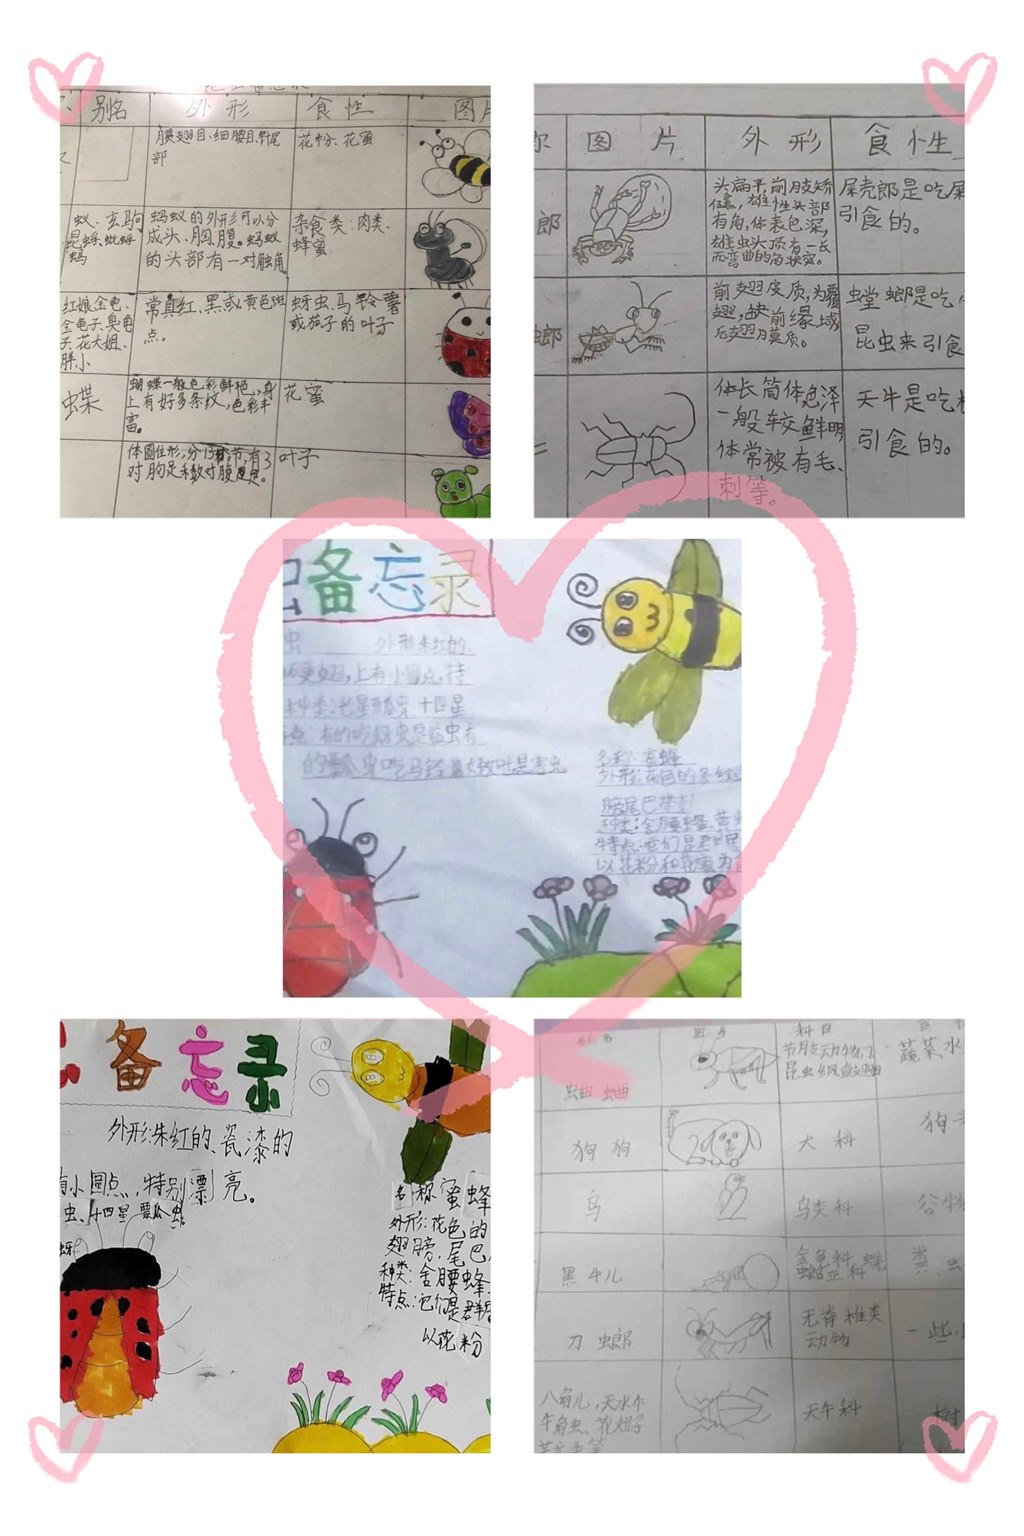 别名 外形 食性 图片
膜翅目、细腰目、针尾部
花粉、花蜜
蚁、玄驹
昆蜉、蚍蜉
蚂
蚂蚁的外形可以分
成头、胸、腹。蚂蚁
的头部有一对触角
杂食类、肉类、
蜂蜜
红娘、金龟、
金龟子、臭龟
子、花大姐、
胖小
常真红、黑或黄色斑
点。
蚜虫、马铃薯
或茄子的叶子
蝶
蝴蝶一般色彩鲜艳,身
上有好多条纹,色彩丰
富。
花蜜
体圆住形,分13节,有3
对胸足和数对腹足。
叶子
图片 外形 食性
郎
头扁平,前肢矫
雄性头部
有角,体表色深,
雄虫头顶有一长
而弯曲的角
屎壳郎是吃屎
引食的。
螂
前翅皮质,为覆
翅,缺前缘域
后翅膜质。
螳螂是吃
昆虫来引食
体长筒体色泽
一般较鲜明
体常被有毛、
刺等。
天牛是吃
引食的。
备忘录
虫 外形朱红的、
翅,上有小圆点,特
种类:七星瓢虫、十四星
点:有的吃蚜虫是益虫有
的瓢虫吃马铃薯
叶是害虫
名称:蜜蜂
外形:花色的条纹
膀尾巴带刺
种类:金腰蜂、
特点:它们是
以花粉和花蜜为
备忘录
外形:朱红的、瓷漆的
有小圆点,特别漂亮。
虫、十四星瓢虫。
蚜
名称蜜蜂
外形:花色的
翅膀,尾巴,
种类:金腰蜂
特点:它们是群
以花粉
别名 图片 科目 食
蛐蛐
节肢动物门
昆虫纲
蔬菜、水
狗狗
犬科
狗
鸟
鸟类科
谷物
黑牛儿
金龟科
粪、虫
刀螂
无脊椎类
动物
一些
八角儿,天水牛
牛角虫、花妞子
天牛科
树